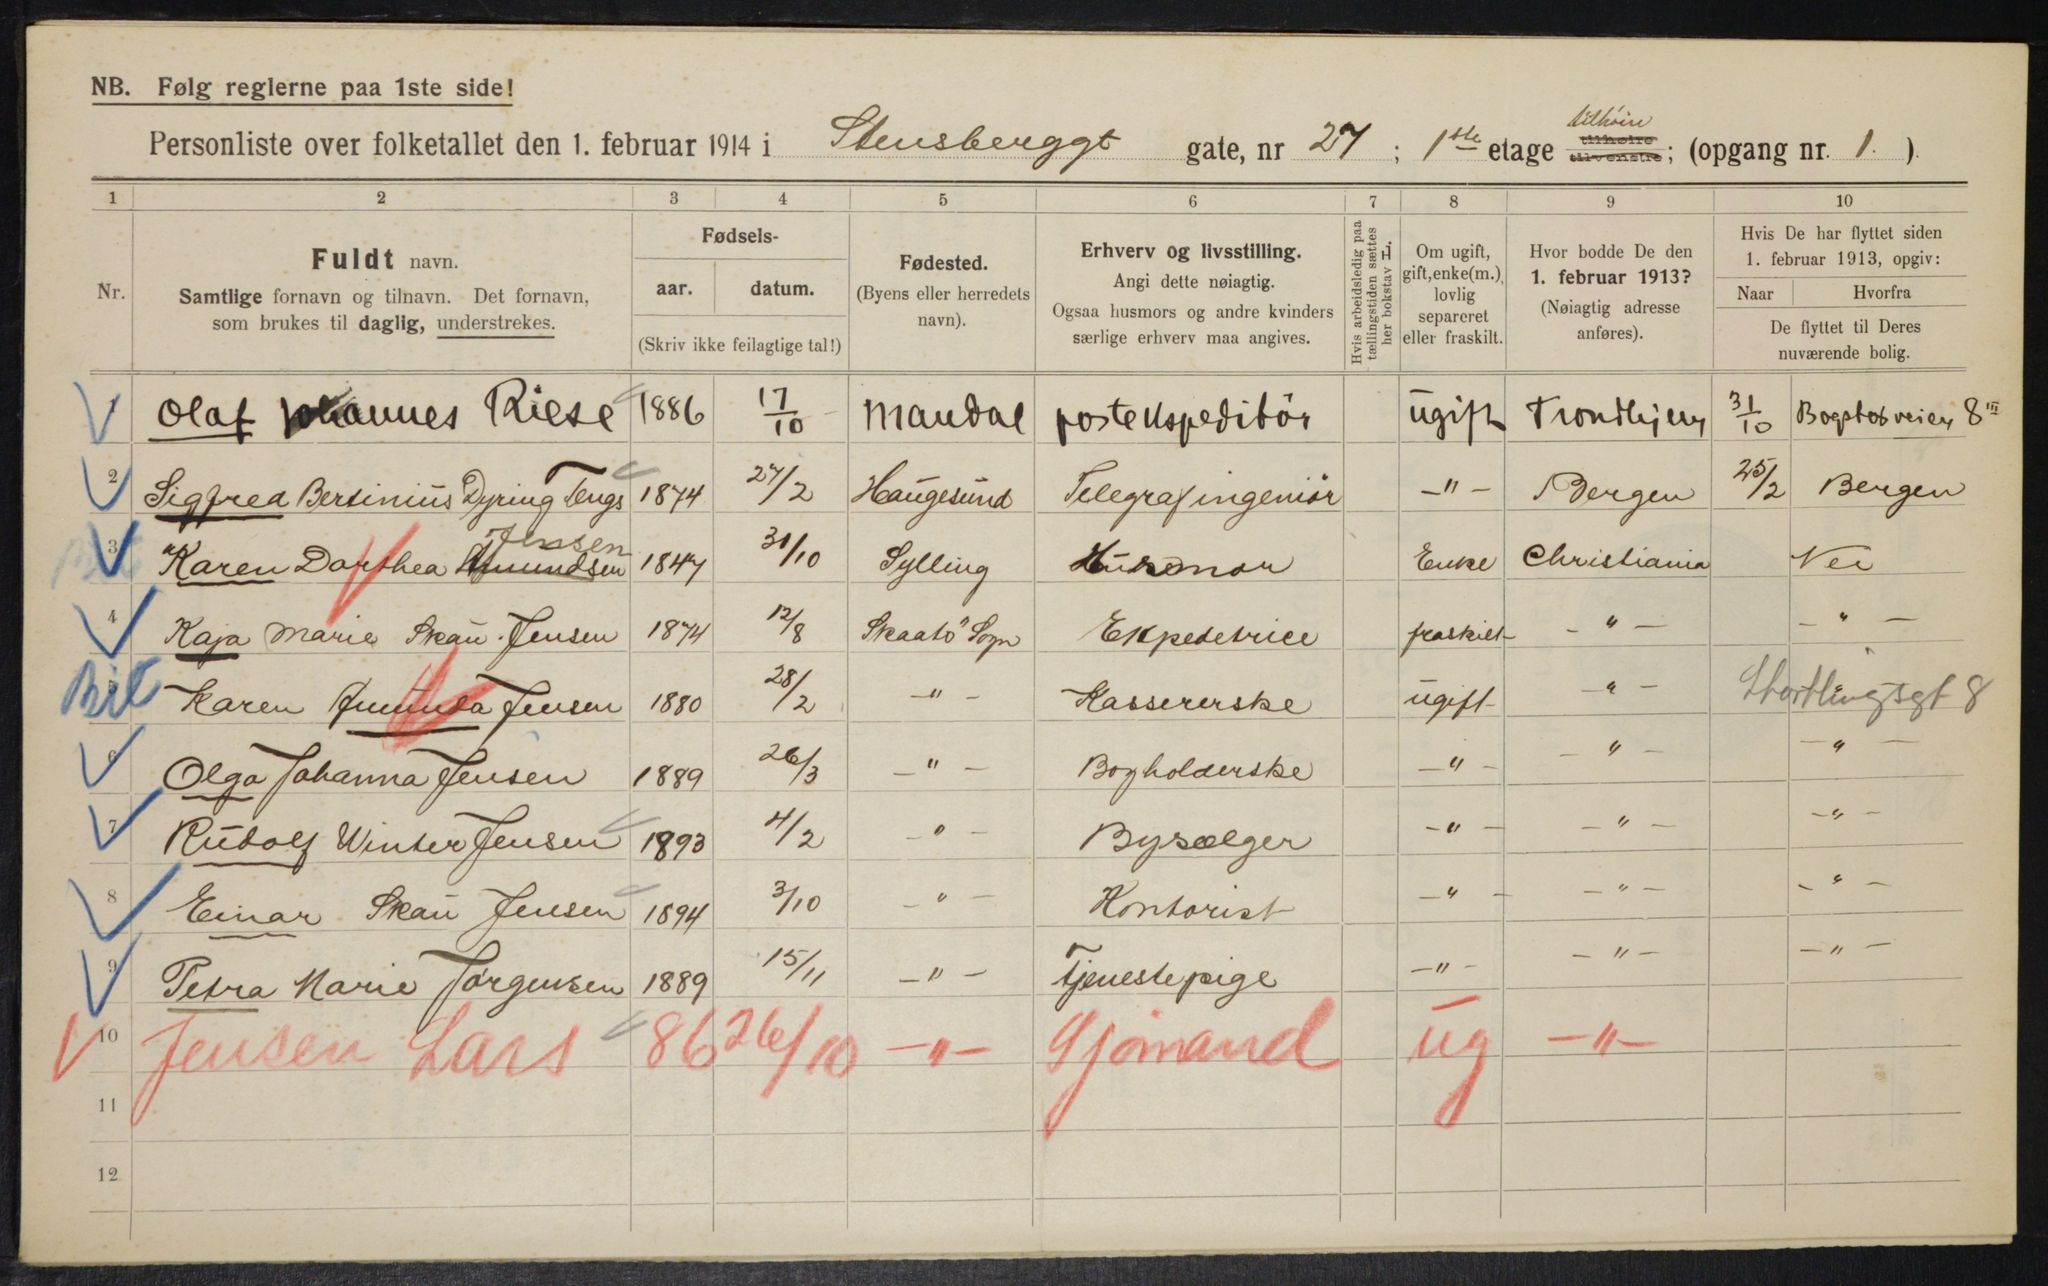 NB. Følg reglerne paa 1ste side!
tilhøire
Personliste over folketallet den 1. februar 1914 i Stensberggt gate, nr 27 ; 1ste etage tilhøire tilvenstre ; (opgang nr. 1. )
1 2 3 4 5 6 7 8 9 10
Nr.
Fuldt navn.
Samtlige fornavn og tilnavn. Det fornavn,
som brukes til daglig, understrekes.
Fødsels-
aar. datum.
(Skriv ikke feilagtige tal!)
Fødested.
(Byens eller herredets
navn).
Erhverv og livsstilling.
Angi dette nøiagtig.
Ogsaa husmors og andre kvinders
særlige erhverv maa angives.
Hvis arbeidsledig paa
tællingstiden sættes
her bokstav L.
Om ugift,
gift, enke(m.),
lovlig
separeret
eller fraskilt.
Hvor bodde De den
1. februar 1913?
(Nøiagtig adresse
anføres).
Hvis De har flyttet siden
1. februar 1913, opgiv:
Naar Hvorfra
De flyttet til Deres
nuværende bolig.
1 Olaf Johannes Riese 1886 17/10 Mandal postekspeditør ugift Trondhjem 31/10 Bogstadveien 8 III
2 Sigfred Bertinius Dyring Tengs 1874 27/2 Haugesund Telegrafingeniør -"- Bergen 25/2 Bergen
Jensen
3 Karen Dorthea Amundsen 1847 31/10 Sylling Husmor Enke Christiania Nei
4 Kaja Marie Skau Jensen 1874 12/8 Skaatø Sogn Ekpedetrice fraskilt -"- -"-
Bit 5 Karen Amunda Jensen 1880 28/2 -"- Kassererske ugift -"- Stortlingsgt 8
6 Olga Johanna Jensen 1889 26/3 -"- Bogholderske -"- -"- -"-
7 Rudolf Winter Jensen 1893 4/2 -"- Bysælger -"- -"- -"-
8 Einar Skau Jensen 1894 3/10 -"- Kontorist -"- -"- -"-
9 Petra Marie Jørgensen 1889 15/11 -"- Tjenestepige -"- -"- -"-
10 Jensen Lars 86 26/10 -"- Sjømand ug -"-
11
12